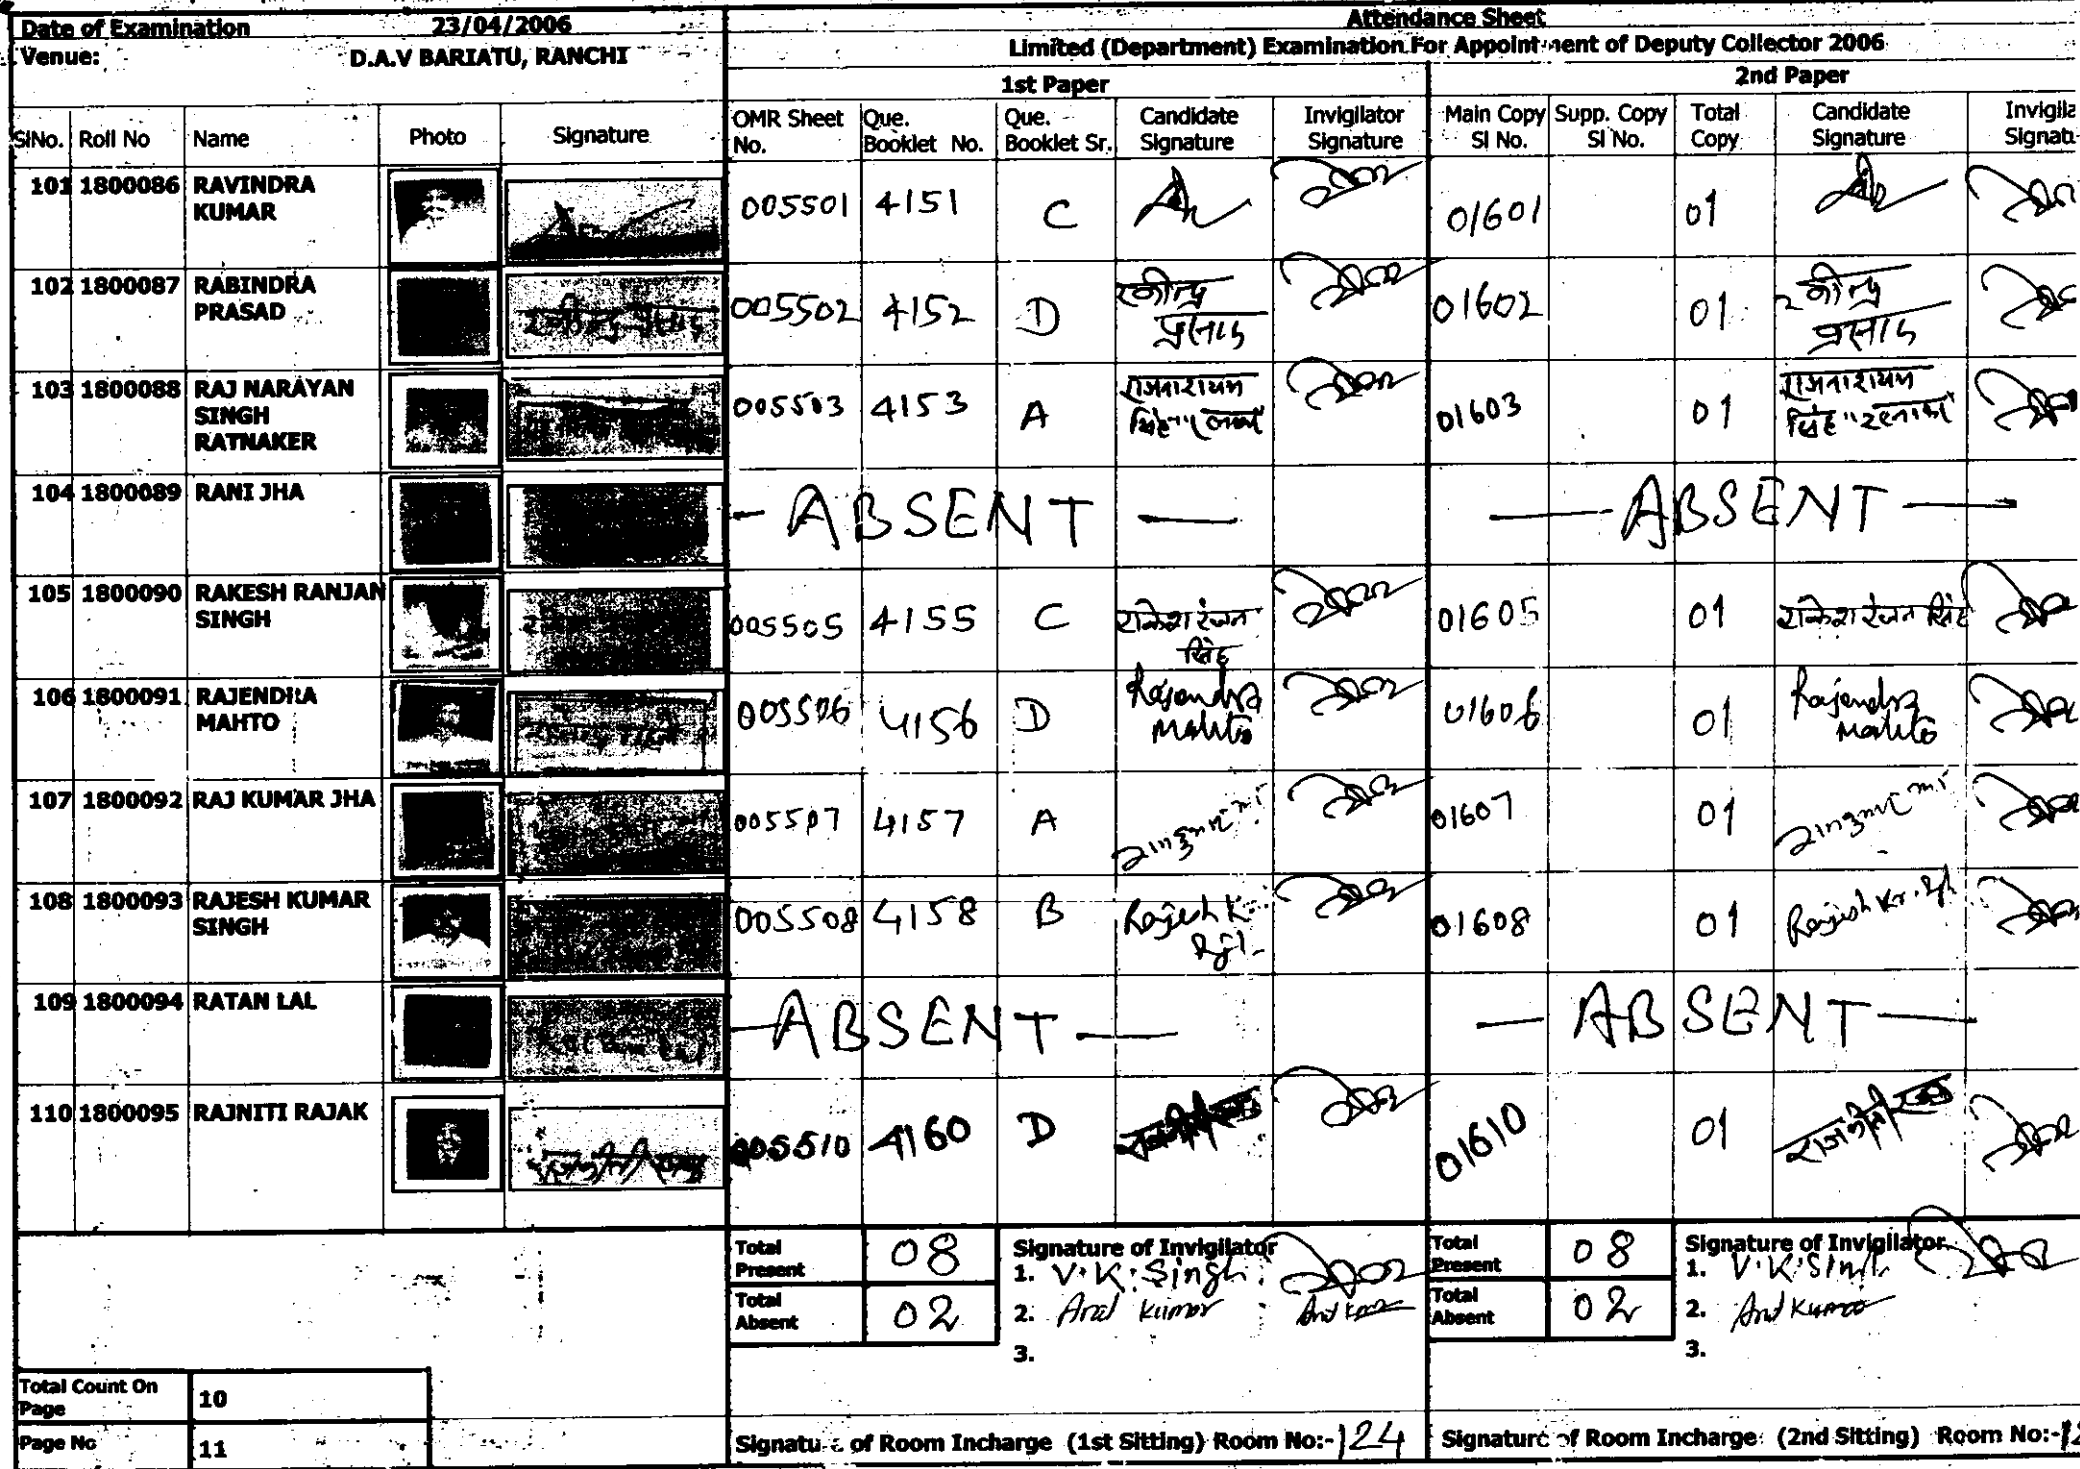 Date of Examination 23/04/2006 Attendance Sheet
Venue: D.A.V BARIATU, RANCHI Limited (Department) Examination For Appointment of Deputy Collector 2006
1st Paper 2nd Paper
SlNo. Roll No Name Photo Signature OMR Sheet No. Que. Booklet No. Que. Booklet Sr. Candidate Signature Invigilator Signature Main Copy Sl No. Supp. Copy Sl No. Total Copy Candidate Signature
101 1800086 RAVINDRA KUMAR 005501 4151 C 01601 01
102 1800087 RABINDRA PRASAD 005502 4152 D रवीन्द्र प्रसाद 01602 01 रवीन्द्र प्रसाद
103 1800088 RAJ NARAYAN SINGH RATNAKER 005503 4153 A राजनारायण सिंह 01603 01 राजनारायण सिंह "रत्नाकर"
104 1800089 RANI JHA - ABSENT — — ABSENT —
105 1800090 RAKESH RANJAN SINGH 005505 4155 C राकेश रंजन सिंह 01605 01 राकेश रंजन सिंह
106 1800091 RAJENDRA MAHTO 005506 4156 D Rajendra Mahto 01606 01 Rajendra Mahto
107 1800092 RAJ KUMAR JHA 005507 4157 A 01607 01
108 1800093 RAJESH KUMAR SINGH 005508 4158 B Rajesh K 01608 01 Rajesh Kr.
109 1800094 RATAN LAL - ABSENT — — ABSENT —
110 1800095 RAJNITI RAJAK 005510 4160 D 01610 01 राजनीति रजक
Total Present 08 Signature of Invigilator Total Present 08 Signature of Invigilator
1. V.K. Singh 1. V.K. Singh
Total Absent 02 2. Kumar Total Absent 02 2. Kumar
3. 3.
Total Count On Page 10
Page No 11 Signature of Room Incharge (1st Sitting) Room No:- 124 Signature of Room Incharge (2nd Sitting) Room No:-